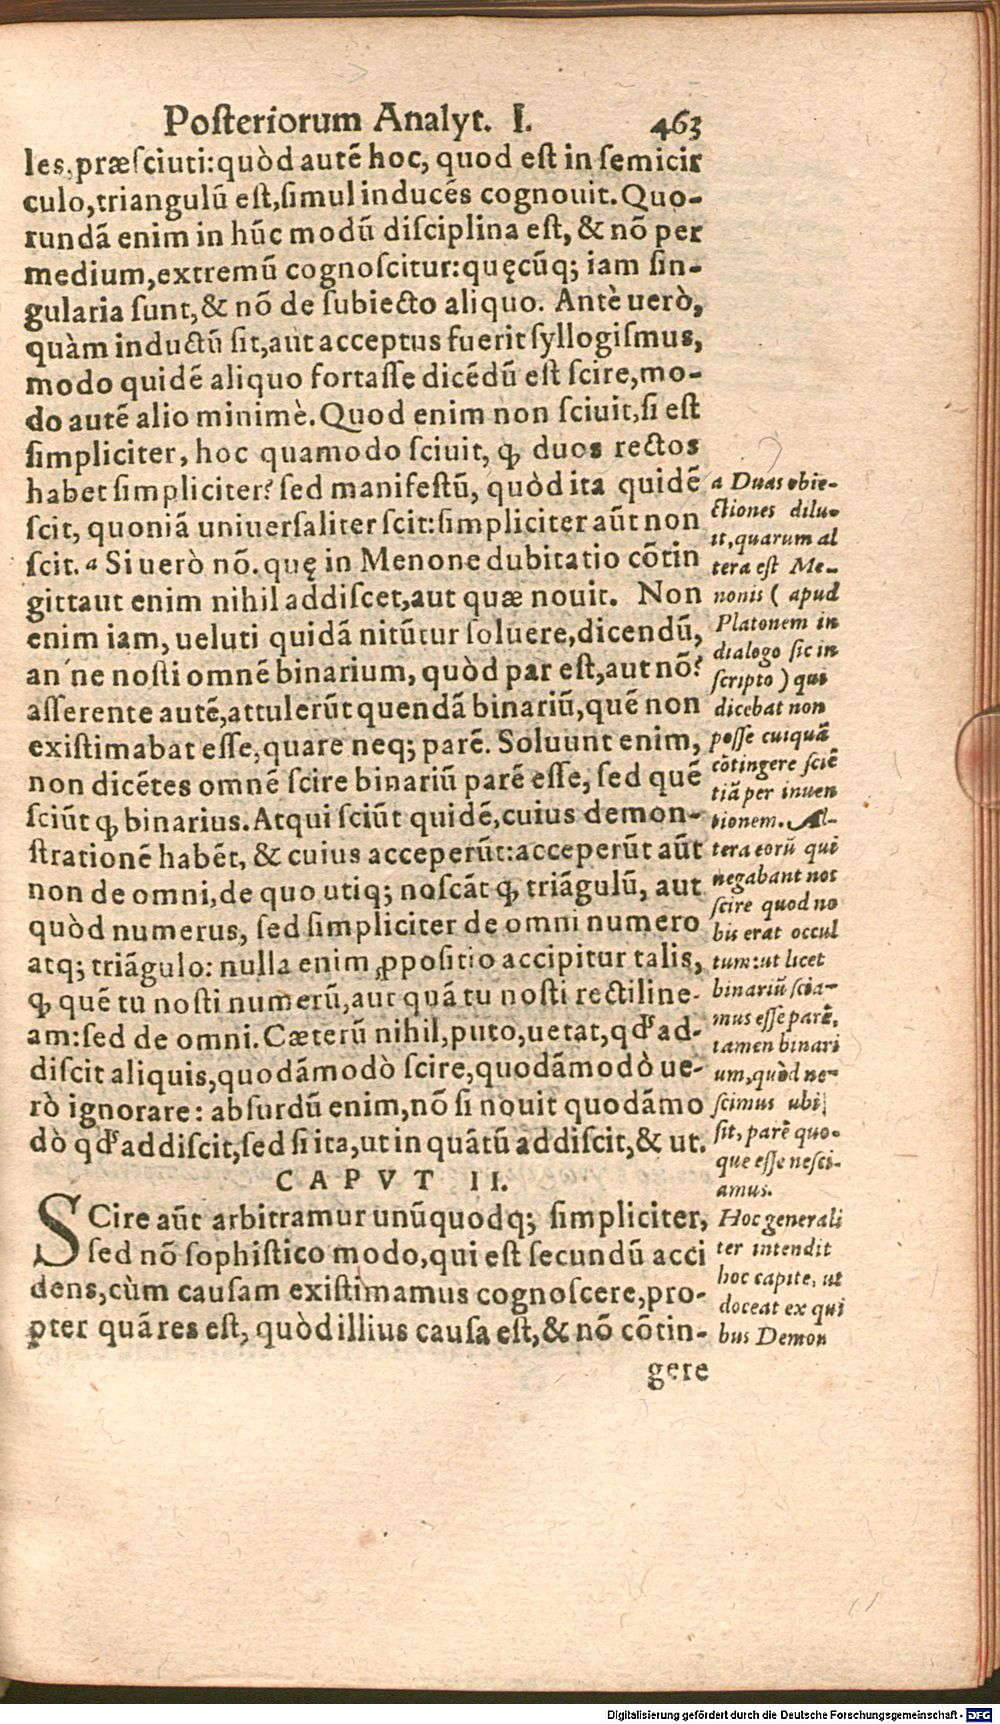 Poſteriorum Analyt. I. 463
les, præſciuti: quòd autē hoc, quod eſt in ſemicir
culo, triangulū eſt, ſimul inducēs cognouit. Quo-
rundā enim in hūc modū diſciplina eſt, & nō per
medium, extremū cognoſcitur: quęcūq; iam ſin-
gularia ſunt, & nō de ſubiecto aliquo. Antè uerò,
quàm inductū ſit, aut acceptus fuerit ſyllogiſmus,
modo quidē aliquo fortaſſe dicēdū eſt ſcire, mo-
do autē alio minimè. Quod enim non ſciuit, ſi eſt
ſimpliciter, hoc quamodo ſciuit, ꝙ duos rectos
habet ſimpliciter? ſed manifeſtū, quòd ita quidē
ſcit, quoniā uniuerſaliter ſcit: ſimpliciter aūt non
ſcit. a Si uerò nō. quę in Menone dubitatio cōtin
git: aut enim nihil addiſcet, aut quæ nouit. Non
enim iam, ueluti quidā nitūtur ſoluere, dicendū,
an´ne noſti omnē binarium, quòd par eſt, aut nō?
aſſerente autē, attulerūt quendā binariū, quē non
exiſtimabat eſſe, quare neq; parē. Soluunt enim,
non dicētes omnē ſcire binariū parē eſſe, ſed quē
ſciūt ꝙ binarius. Atqui ſciūt quidē, cuius demon-
ſtrationē habēt, & cuius acceperūt: acceperūt aūt
non de omni, de quo utiq; noſcāt ꝙ triāgulū, aut
quòd numerus, ſed ſimpliciter de omni numero
atq; triāgulo: nulla enim ꝓpoſitio accipitur talis,
ꝙ quē tu noſti numerū, aut quā tu noſti rectiline-
am: ſed de omni. Cæterū nihil, puto, uetat, qđ ad-
diſcit aliquis, quodāmodò ſcire, quodāmodò ue-
rò ignorare: abſurdū enim, nō ſi nouit quodāmo
dò qđ addiſcit, ſed ſi ita, ut in quātū addiſcit, & ut.
CAPVT II.
SCire aūt arbitramur unūquodq; ſimpliciter,
ſed nō ſophiſtico modo, qui eſt ſecundū acci
dens, cùm cauſam exiſtimamus cognoſcere, pro-
pter quā res eſt, quòd illius cauſa eſt, & nō cōtin-
gere
a Duas obie-
ctiones dilu-
it, quarum al
tera eſt Me-
nonis (apud
Platonem in
dialogo ſic in
ſcripto) qui
dicebat non
poſſe cuiquā
cōtingere ſciē
tiā per inuen
tionem. Al-
tera eorū qui
negabant nos
ſcire quod no
bis erat occul
tum: ut licet
binariū ſcia-
mus eſſe parē,
tamen binari
um, quòd ne-
ſcimus ubi
ſit, parē quo-
que eſſe neſci-
amus.
Hoc generali
ter intendit
hoc capite, ut
doceat ex qui
bus Demon
Digitalisierung gefördert durch die Deutsche Forschungsgemeinschaft - DFG